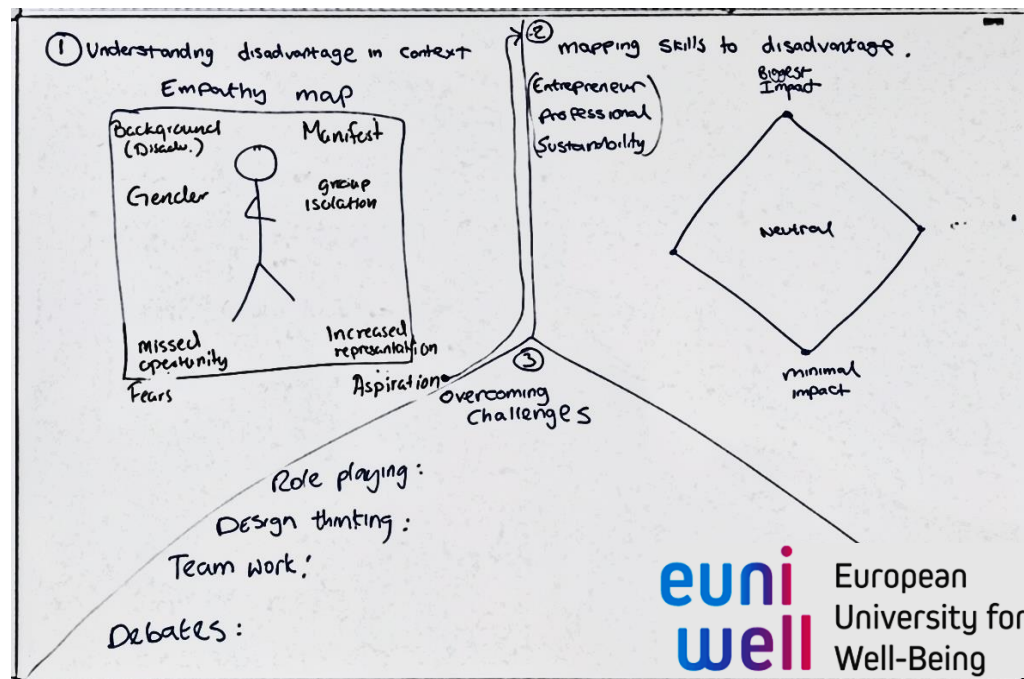 ① Understanding disadvantage in context
Empathy map
Background
(Disadv.)
Manifest
Gender
group
isolation
missed
opportunity
Increased
representation
Fears
Aspiration
② mapping skills to disadvantage.
(Entrepreneur
Professional
Sustainability)
Biggest
Impact
Neutral
minimal
impact
③
Overcoming
Challenges
Role playing:
Design thinking:
Team work:
Debates:
euni
well
European
University for
Well-Being